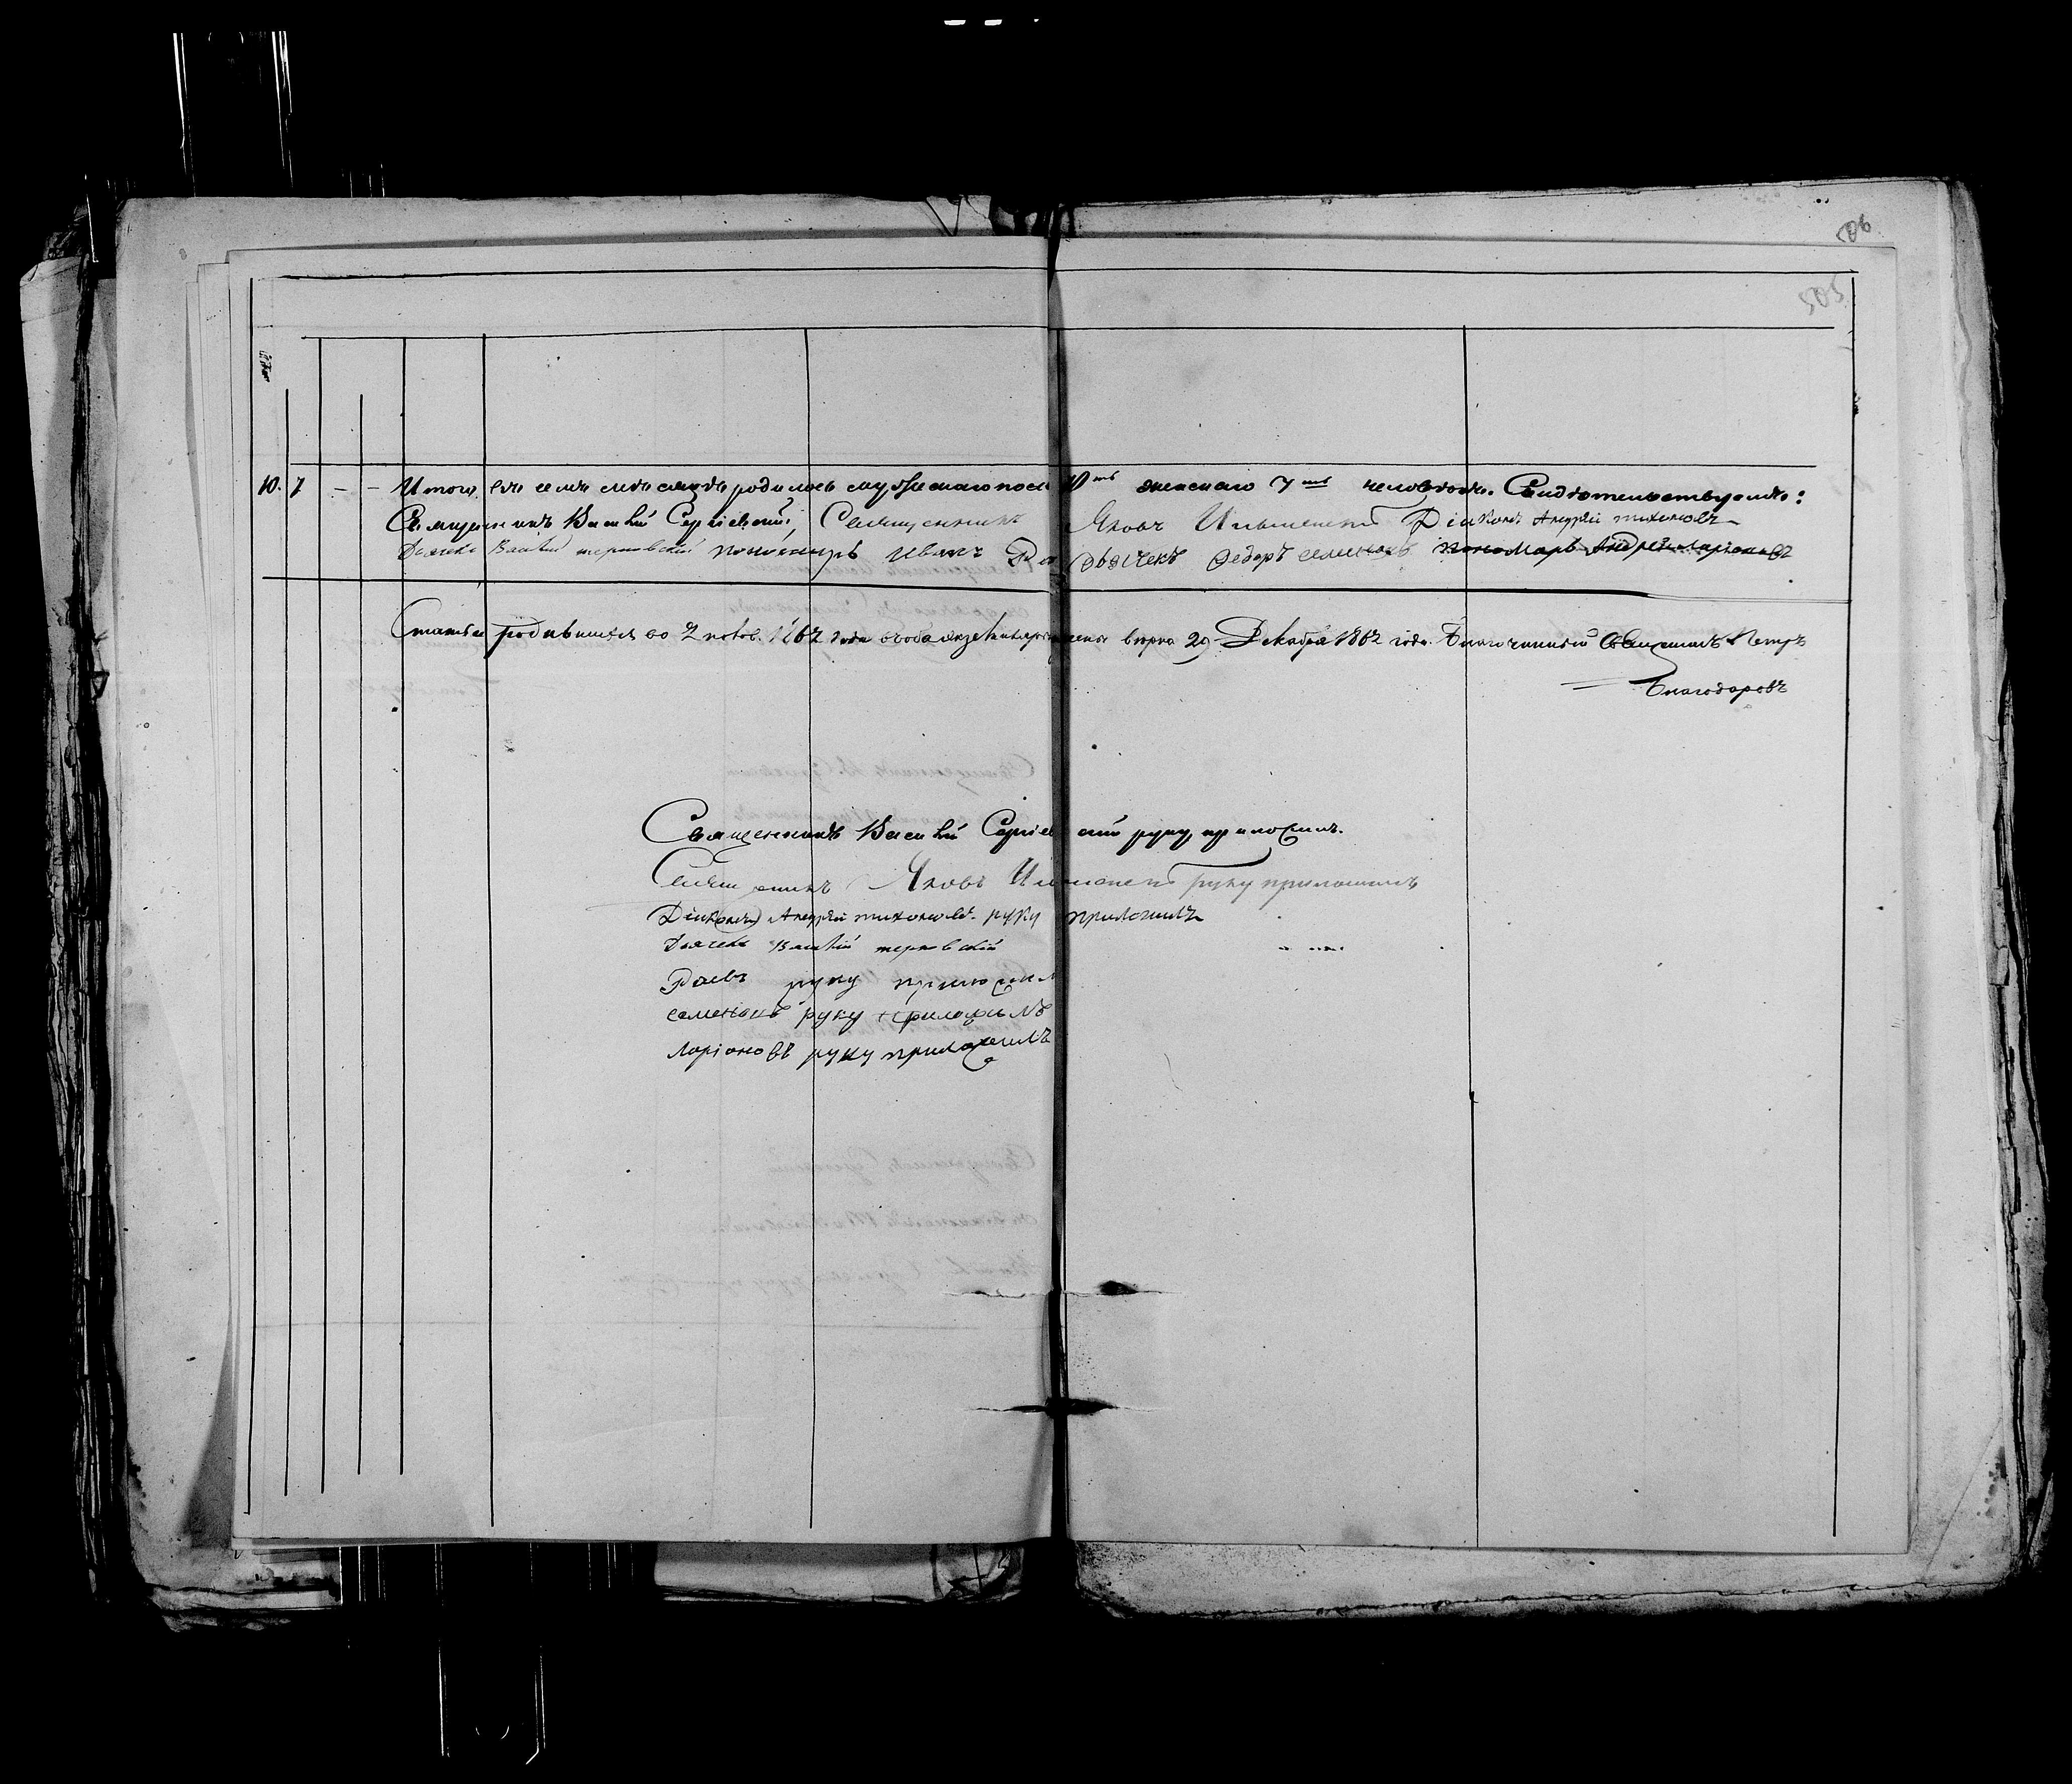 506
505
10. 7 - - Итого въ семъ месяцѣ родилось мужескаго пола 10ть женскаго 7мь человѣкъ. Свидѣтельствуемъ:
Священникъ Василій Сергіевскій, Священникъ Яковъ Діаконъ Андрей тихоновъ
Дьячекъ Василій терновскій пономарь Иванъ Раевъ Дьячекъ Федоръ семеновъ пономарь Андрей ларіоновъ
Статья родившихся со 2 1862 года вѣрна 29 Декабря 1862 года. Благочинный Священникъ Петръ
Благодаровъ
Священникъ Василій Сергіевскій руку приложилъ.
Священникъ Яковъ руку приложилъ
Діаконъ Андрей тихоновъ руку приложилъ
Дьячекъ Василій терновскій
Раевъ руку приложил
семеновъ руку приложилъ
ларіоновъ руку приложилъ